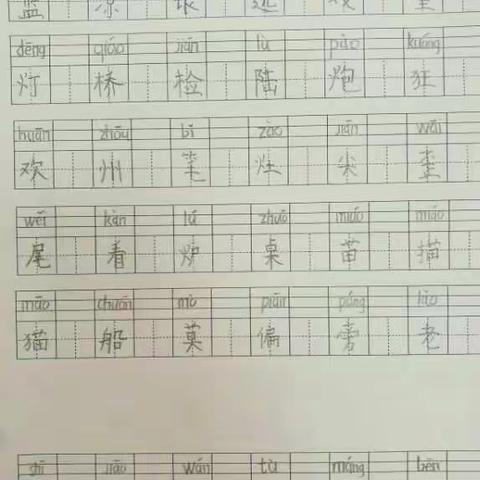 dēng qiáo jiǎn lù pào kuáng
灯 桥 检 陆 炮 狂
huān zhōu bǐ zào jiān wāi
欢 州 笔 灶 尖 歪
wěi kàn lú zhuō miáo miáo
尾 看 炉 桌 苗 描
māo chuán mò piān páng lǎo
猫 船 莫 偏 旁 老
jiāo wán tù máng bēn